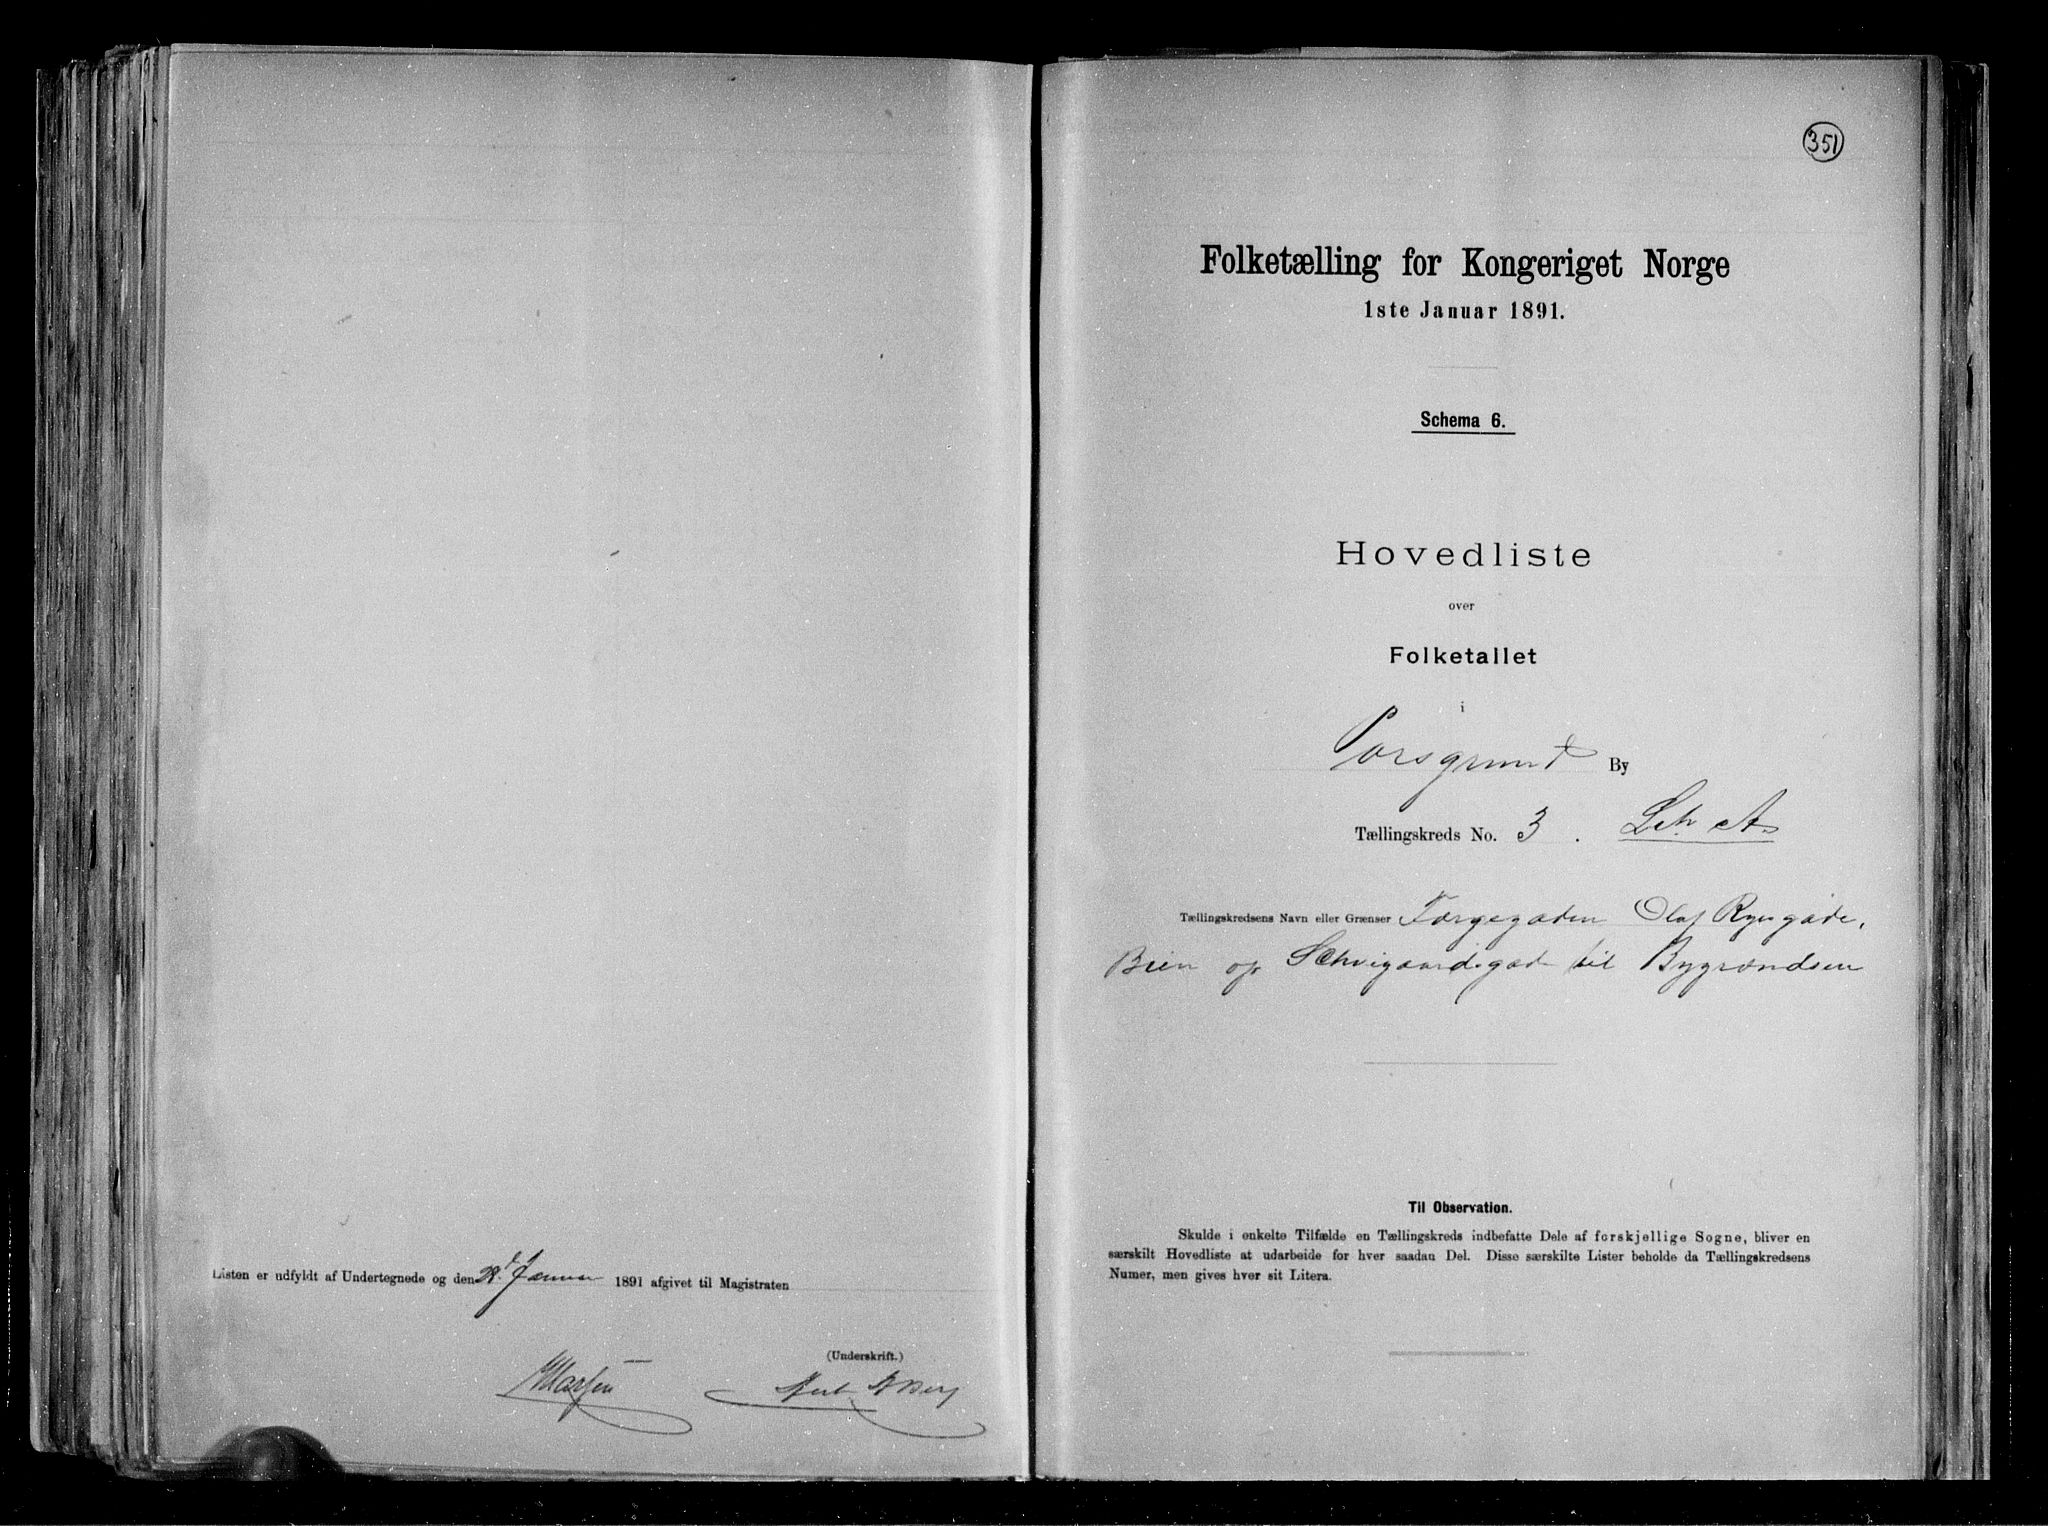 Listen er udfyldt af Undertegnede og den 28d Januar 1891 afgivet til Magistraten
(Underskrift.)
351
Folketælling for Kongeriget Norge
1ste Januar 1891.
Schema 6.
Hovedliste
over
Folketallet
i
Porsgrund By
Tællingskreds No. 3. A
Tællingskredsens Navn eller Grænser Færgegaden Olaf Ryesgade,
og Schveigaardsgade til Bygrændsen
Til Observation.
Skulde i enkelte Tilfælde en Tællingskreds indbefatte Dele af forskjellige Sogne, bliver en
særskilt Hovedliste at udarbeide for hver saadan Del. Disse særskilte Lister beholde da Tællingskredsens
Numer, men gives hver sit Litera.